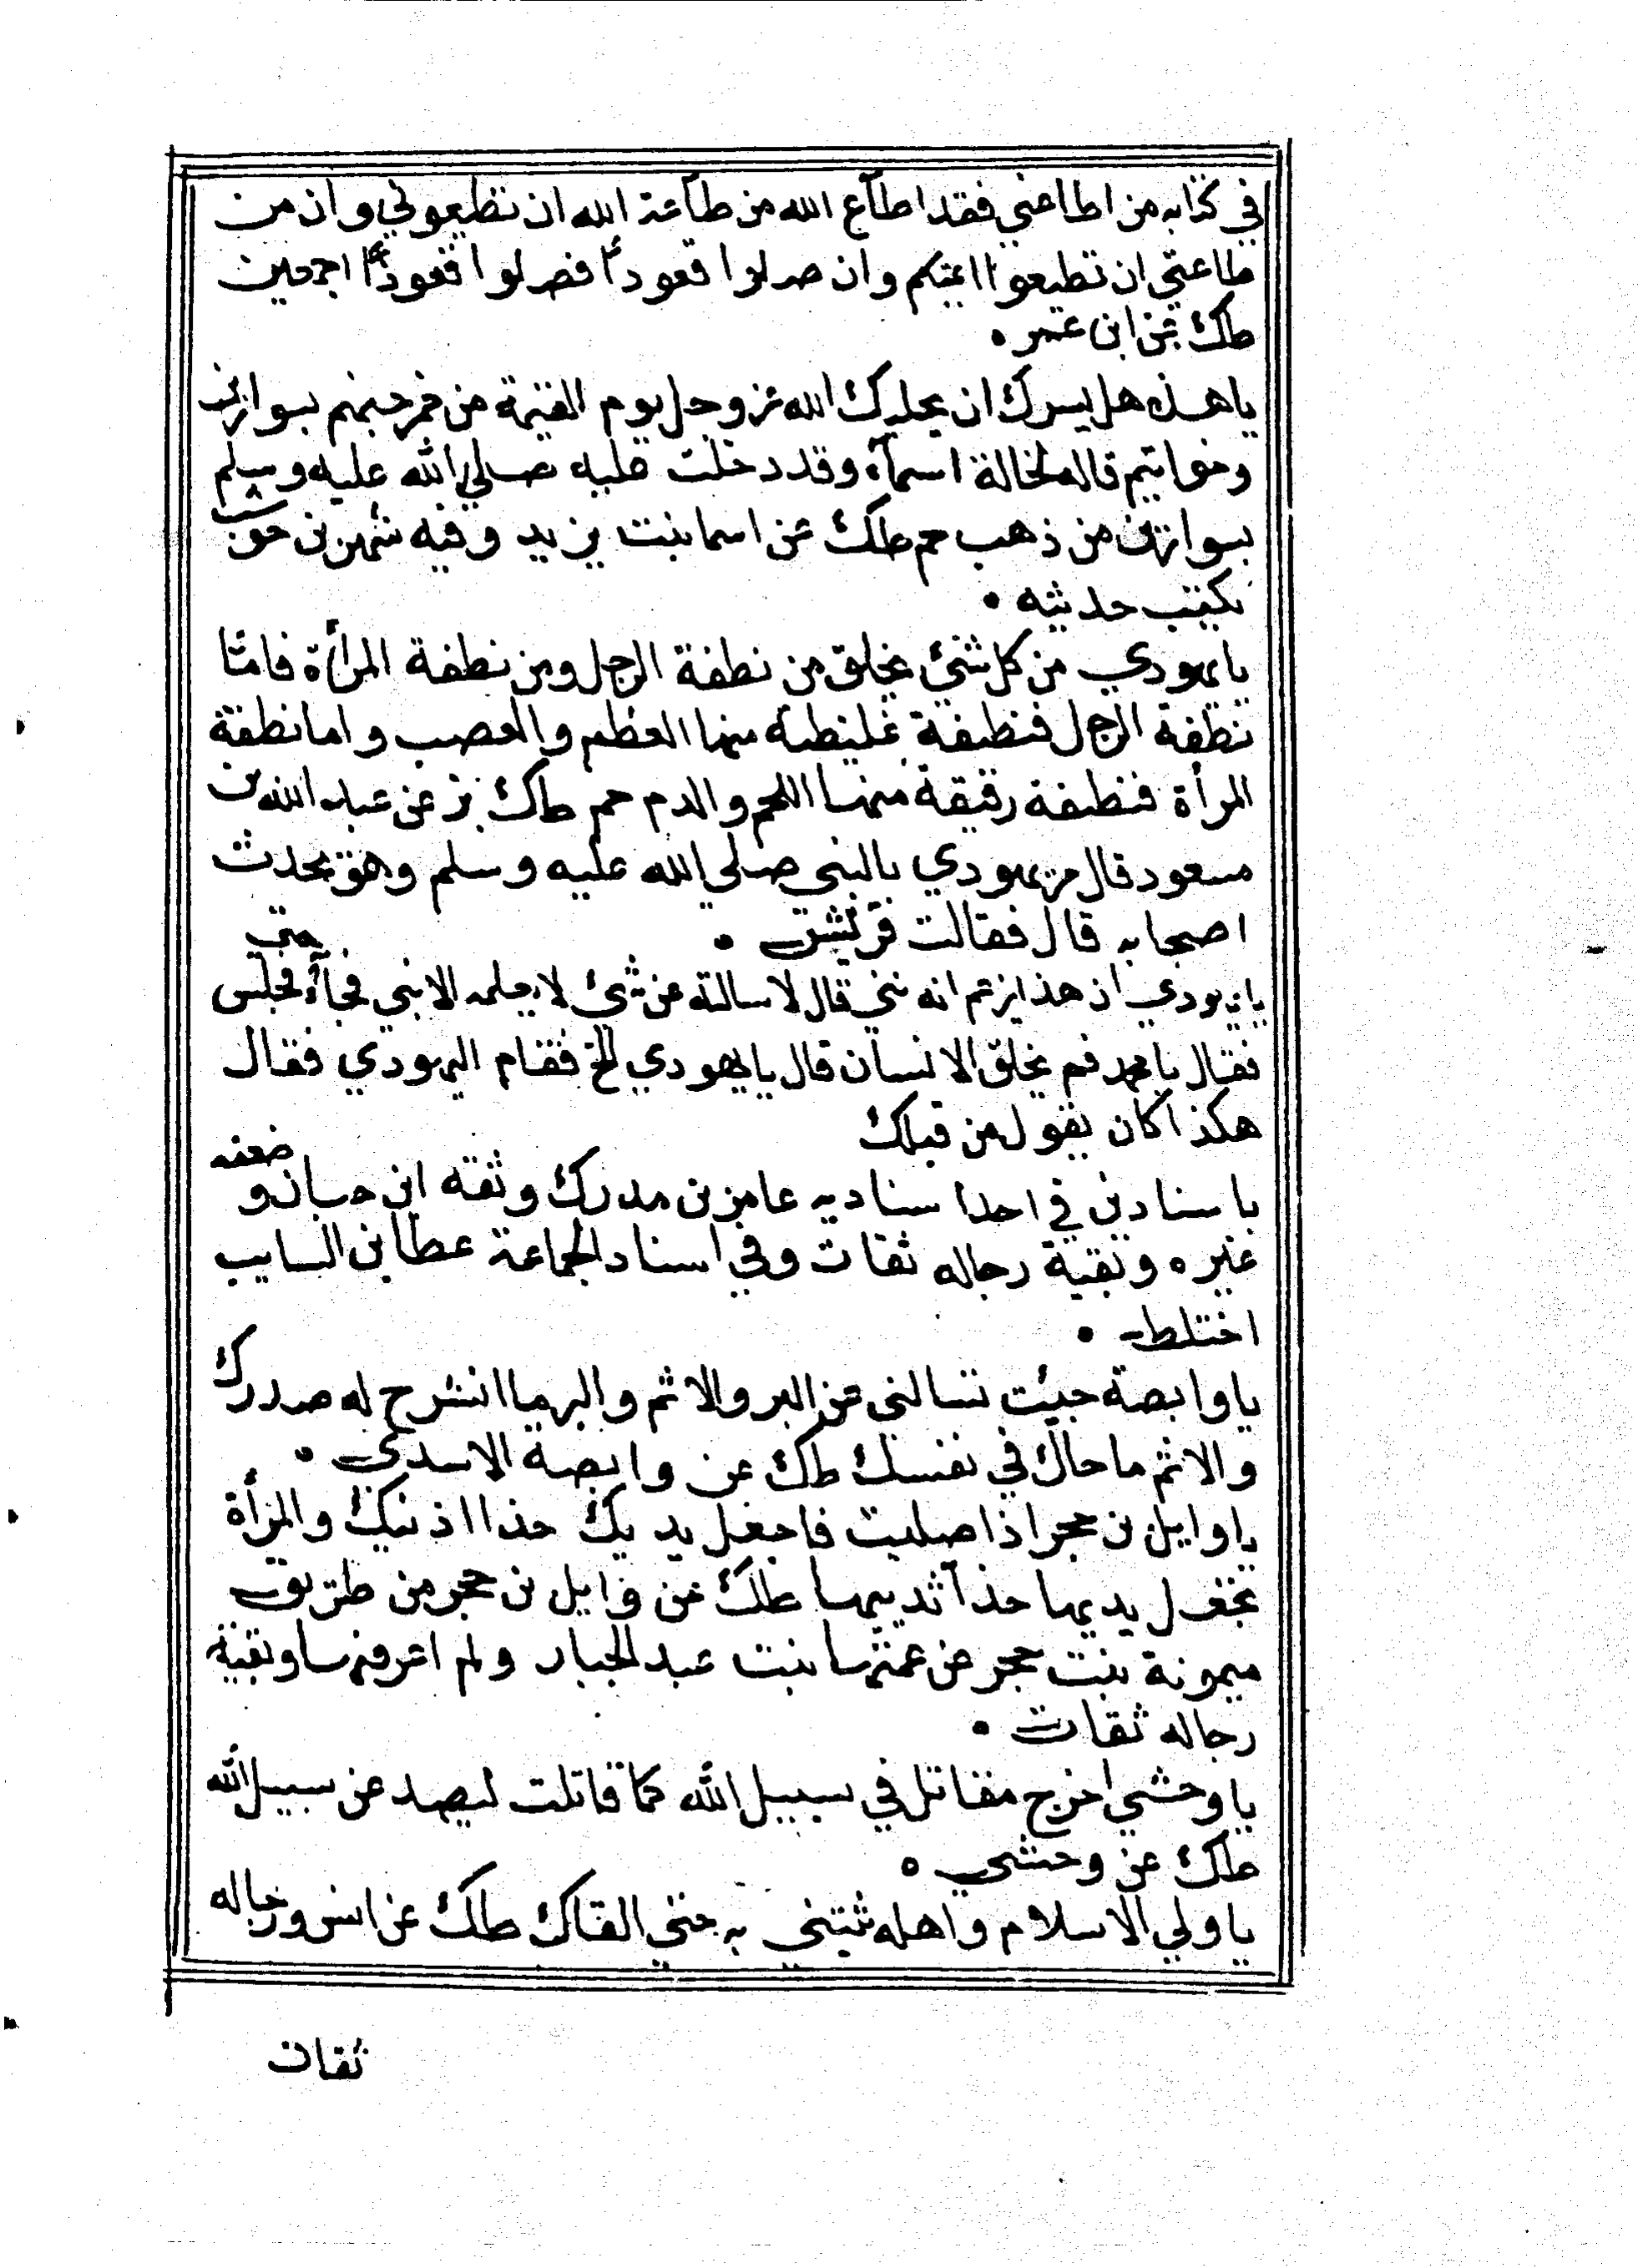 في كتابه من اطاعني فقد اطاع الله من طاعة الله ان تطيعوني وان من
طاعتي ان تطيعوا ائمتكم وان صلوا قعوداً فصلوا قعوداً اجمعين
طك عن ابن عمر .
يا هذه هل يسرك ان يحليك الله عز وجل يوم القيمة من جمر جهنم بسوارين
وخواتيم قاله لخالة اسمآء وقد دخلت عليه صلي الله عليه وسلم
بسوارين من ذهب حم طك عن اسما بنت يزيد وفيه شهر بن حوشب
يكتب حديثه .
يا يهودي من كل شئ يخلق من نطفة الرجل ومن نطفة المرأة فامّا
نطفة الرجل فنطفة غليظة منها العظم والعصب واما نطفة
المرأة فنطفة رقيقة منها اللحم والدم حم طك بز عن عبد الله بن
مسعود قال مر يهودي بالنبي صلي الله عليه وسلم وهو يحدث
اصحابه قال فقالت قريش .
يا يهودي ان هذا يزعم انه نبي قال لاسالنه عن شئ لا يعلمه الا نبي فجآء حتي جلس
فقال يا محمد فمم يخلق الانسان قال يا يهودي الخ فقام اليهودي فقال
هكذا كان يقول من قبلك
باسنادين في احد اسناديه عامر بن مدرك وثقه ابن حبان وضعفه
غيره وبقية رجاله ثقات وفي اسناد الجماعة عطا بن السايب
اختلط .
يا وابصة جيئت تسالني عن البر والاثم والبر ما انشرح له صدرك
والاثم ما حاك في نفسك طك عن وابصة الاسدي .
يا وايل بن حجر اذا صليت فاجعل يديك حذا اذنيك والمرأة
تجعل يديها حذآ ثدييها طك عن وايل بن حجر من طريق
ميمونة بنت حجر عن عمتها بنت عبد الجبار ولم اعرفها وبقية
رجاله ثقات .
يا وحشي اخرج فقاتل في سبيل الله كما قاتلت ليصد عن سبيل الله
طك عن وحشي .
يا ولي الاسلام واهله ثبتني به حتي القاك طك عن انس ورجاله
ثقات